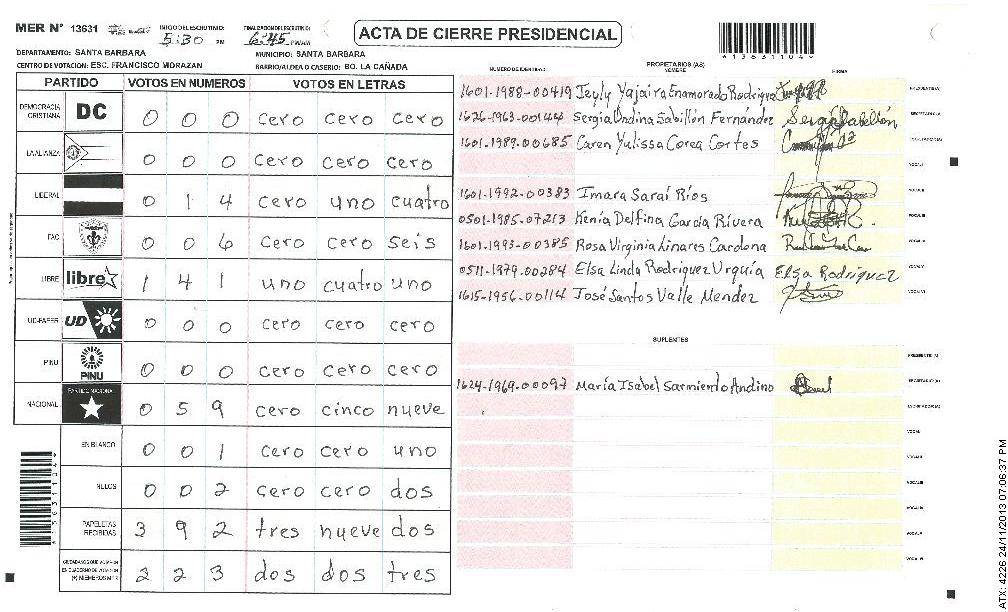 MER N° 13631 INICIO DEL ESCRUTINIO: 5:30 PM FINALIZACION DEL ESCRUTINIO: 6:45 PM
ACTA DE CIERRE PRESIDENCIAL
*13631104*
DEPARTAMENTO: SANTA BARBARA MUNICIPIO: SANTA BARBARA
CENTRO DE VOTACION: ESC. FRANCISCO MORAZAN BARRIO/ALDEA O CASERIO: BO. LA CAÑADA
PARTIDO VOTOS EN NUMEROS VOTOS EN LETRAS
DEMOCRACIA CRISTIANA DC 0 0 0 cero cero cero
LA ALIANZA 0 0 0 cero cero cero
LIBERAL 0 1 4 cero uno cuatro
FAC 0 0 6 cero cero seis
LIBRE libre 1 4 1 uno cuatro uno
UD-FAPER UD 0 0 0 cero cero cero
PINU PINU 0 0 0 cero cero cero
NACIONAL PARTIDO NACIONAL 0 5 9 cero cinco nueve
EN BLANCO 0 0 1 cero cero uno
NULOS 0 0 2 cero cero dos
PAPELETAS RECIBIDAS 3 9 2 tres nueve dos
CIUDADANOS QUE VOTARON EN CUADERNO DE VOTACION (+) MIEMBROS MER 2 2 3 dos dos tres
NUMERO DE IDENTIDAD PROPIETARIOS (AS) NOMBRE FIRMA
1601-1988-00419 Jeyly Yajaira Enamorado Rodriguez PRESIDENTE(A)
1626-1963-00144 Sergia Ondina Sabillón Fernández Sergia Sabillón SECRETARIO(A)
1601-1989-00685 Caren Yulissa Corea Cortes ESCRUTADOR(A)
VOCAL I
1601-1992-00383 Imara Saraí Ríos VOCAL II
0501-1985-07213 Kenia Delfina García Rivera VOCAL III
1601-1993-00385 Rosa Virginia Linares Cardona VOCAL IV
0511-1979-00284 Elsa Linda Rodriguez Urquía Elsa Rodriguez VOCAL V
1615-1956-00114 José Santos Valle Mendez VOCAL VI
SUPLENTES
PRESIDENTE(A)
1624-1969-00097 María Isabel Sarmiento Andino SECRETARIO(A)
ESCRUTADOR(A)
VOCAL I
VOCAL II
VOCAL III
VOCAL IV
VOCAL V
VOCAL VI
ATX: 4226 24/11/2013 07:06:37 PM